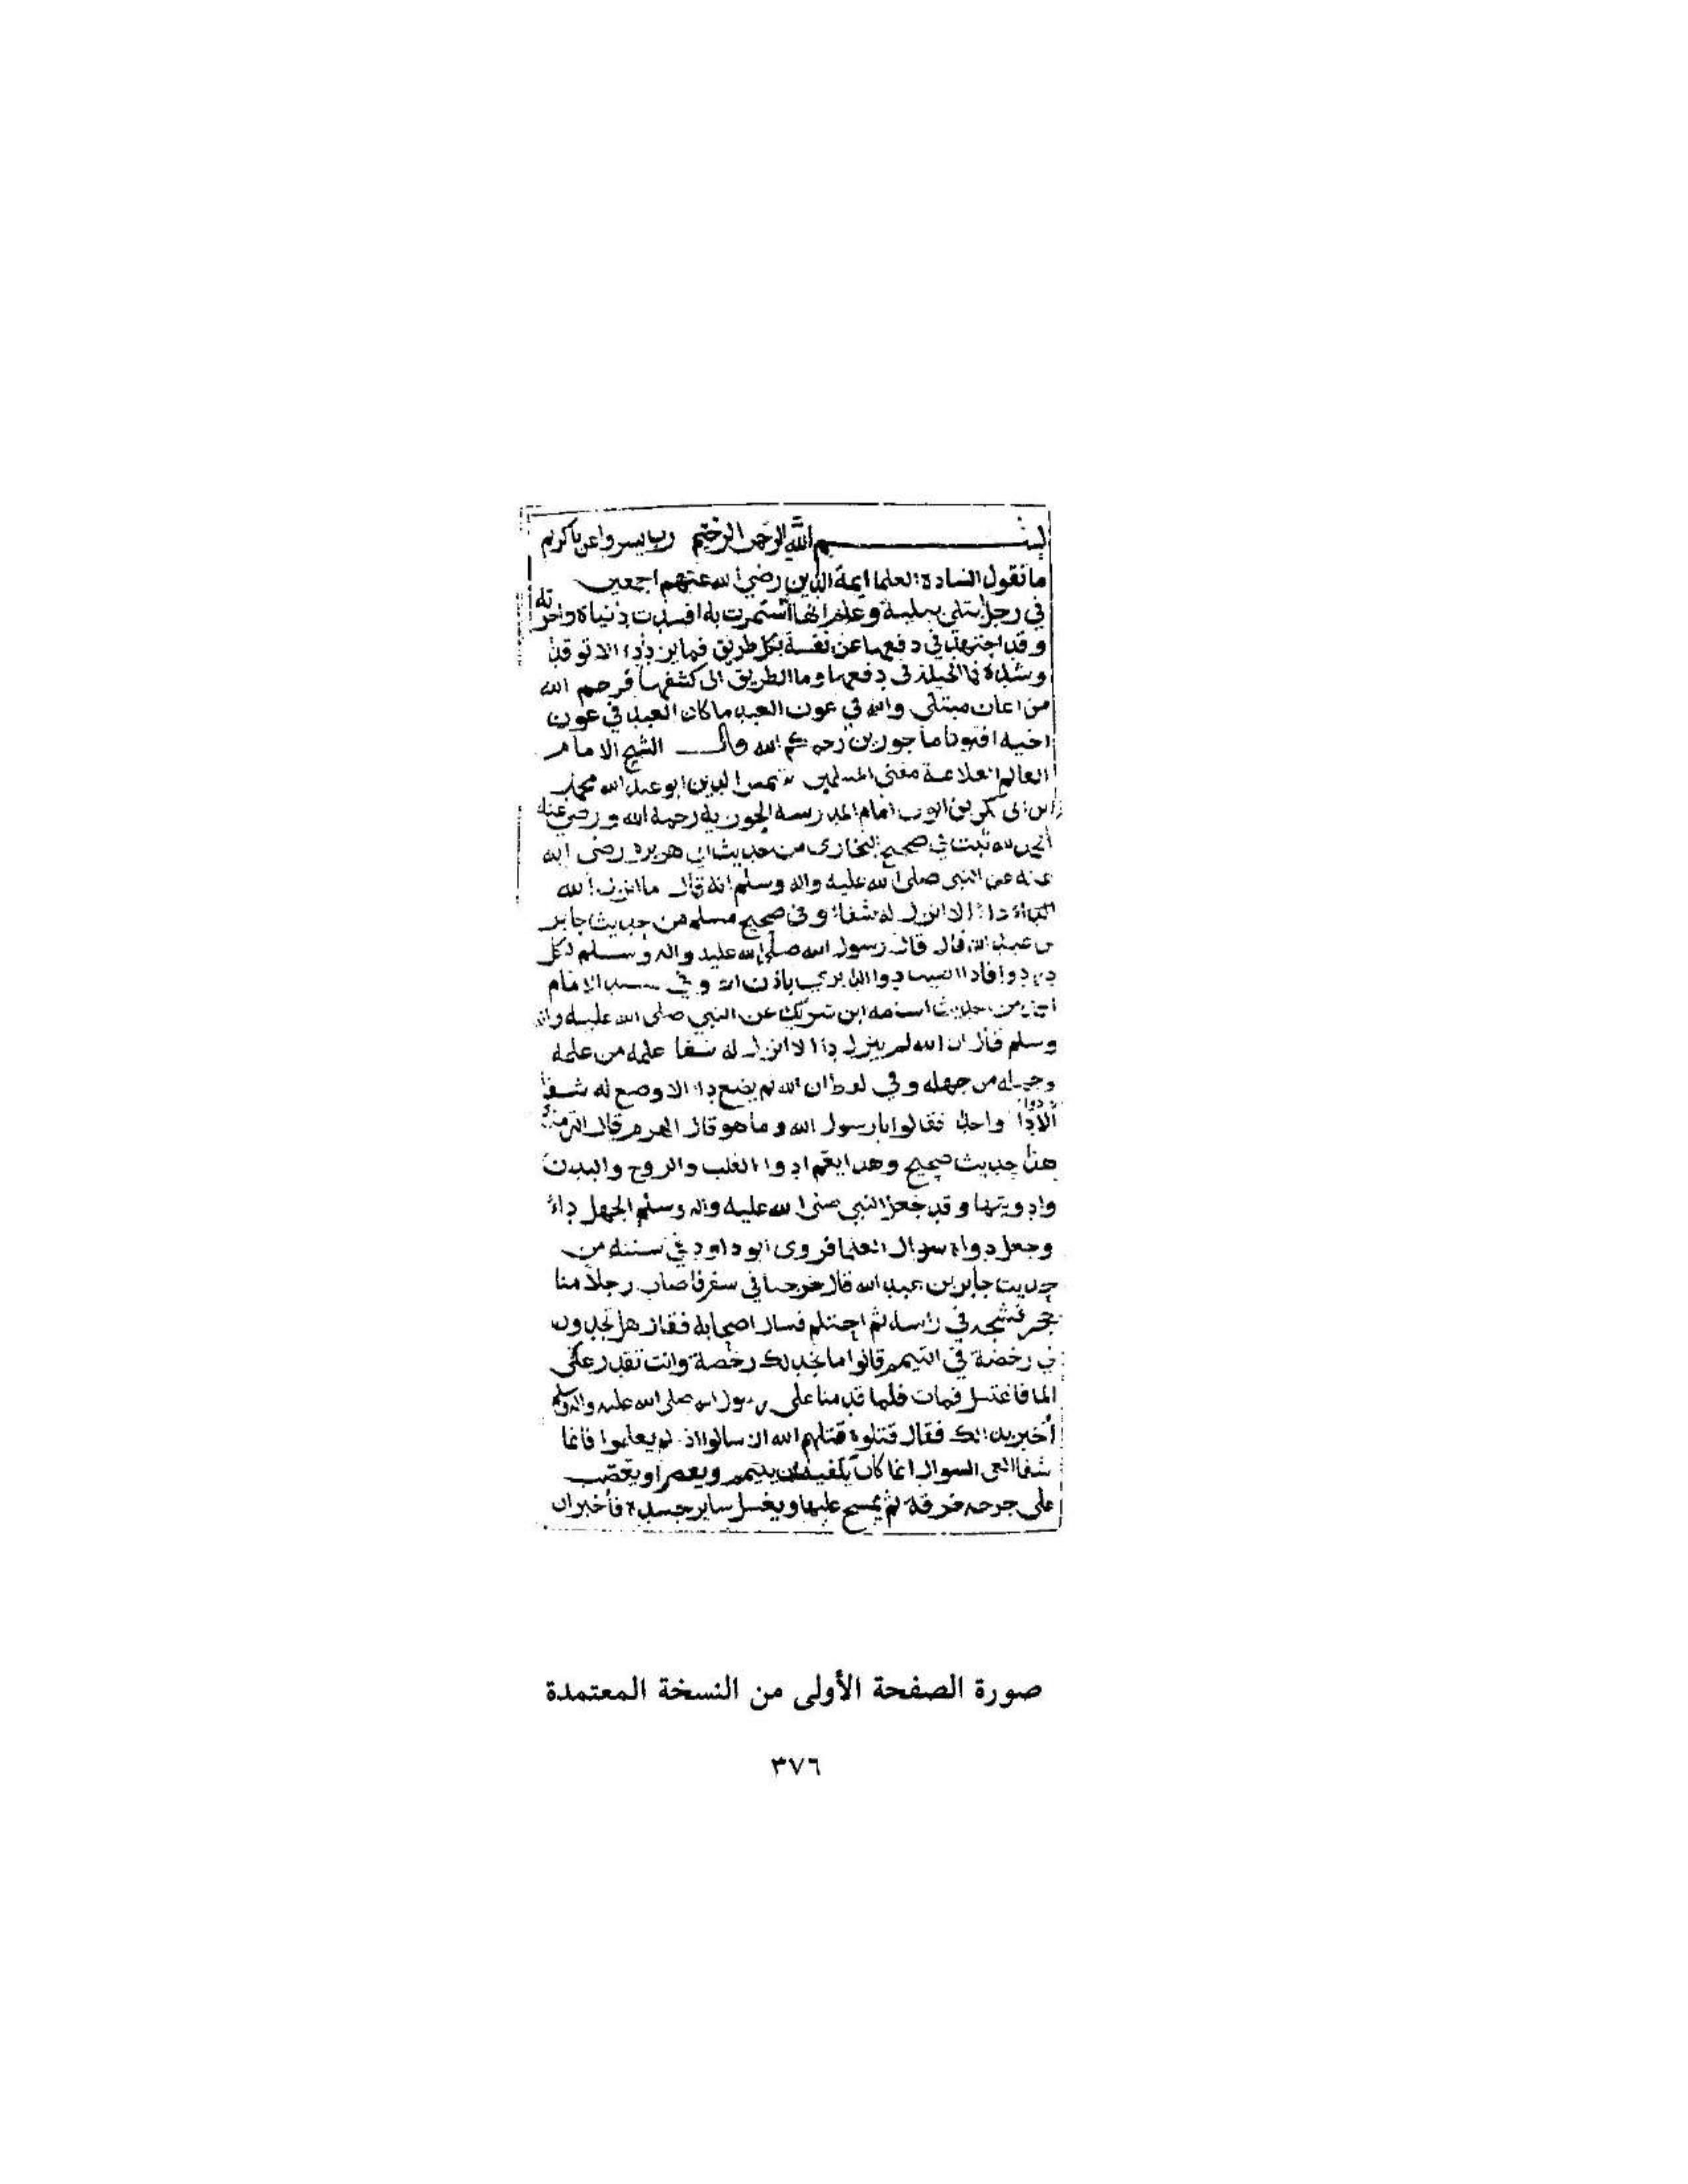 بسم الله الرحمن الرحيم رب يسر واعن يا كريم
ما تقول السادة العلما ايمة الدين رضي الله عنهم اجمعين
في رجل ابتلي ببلية وعلم انها استمرت به افسدت دنياه واخرته
وقد اجتهد في دفعها عن نفسه بكل طريق فما يزداد الا توقدا
وشدة فما الحيلة في دفعها وما الطريق الى كشفها فرحم الله
من اعان مبتلى والله في عون العبد ما كان العبد في عون
اخيه افتونا ماجورين رحمكم الله قال الشيخ الامام
العالم العلامة مفتي المسلمين شمس الدين ابو عبد الله محمد
ابن ابي بكر بن ايوب امام المدرسة الجوزية رحمه الله ورضي عنه
الحمد لله ثبت في صحيح البخاري من حديث ابي هريرة رضي الله
عنه عن النبي صلى الله عليه واله وسلم انه قال ما انزل الله
داء الا انزل له شفاء وفي صحيح مسلم من حديث جابر
بن عبد الله قال قال رسول الله صلى الله عليه واله وسلم لكل
داء دوا فاذا اصيب دوا الداء بري باذن الله وفي مسند الامام
احمد من حديث اسامه ابن شريك عن النبي صلى الله عليه واله
وسلم قال ان الله لم ينزل داء الا انزل له شفا علمه من علمه
وجهله من جهله وفي لفظ ان الله لم يضع داء الا وضع له شفا
او دوا الا دا واحد فقالوا يا رسول الله وما هو قال الهرم قال الترمذي
هذا حديث صحيح وهذا يعم ادواء القلب والروح والبدن
وادويتها وقد جعل النبي صلى الله عليه واله وسلم الجهل داء
وجعل دواه سوال العلما فروى ابو داود في سننه من
حديث جابر بن عبد الله قال خرجنا في سفر فاصاب رجلا منا
حجر فشجه في راسه ثم احتلم فسال اصحابه فقال هل تجدون
لي رخصة في التيمم قالوا ما نجد لك رخصة وانت تقدر على
الما فاغتسل فمات فلما قدمنا على رسول الله صلى الله عليه واله وسلم
أخبر بذلك فقال قتلوه قتلهم الله الا سالوا اذ لم يعلموا فانما
شفا العي السوال انما كان يكفيه ان يتيمم ويعصر او يعصب
على جرحه خرقة ثم يمسح عليها ويغسل ساير جسده فأخبر ان
صورة الصفحة الأولى من النسخة المعتمدة
٣٧٦